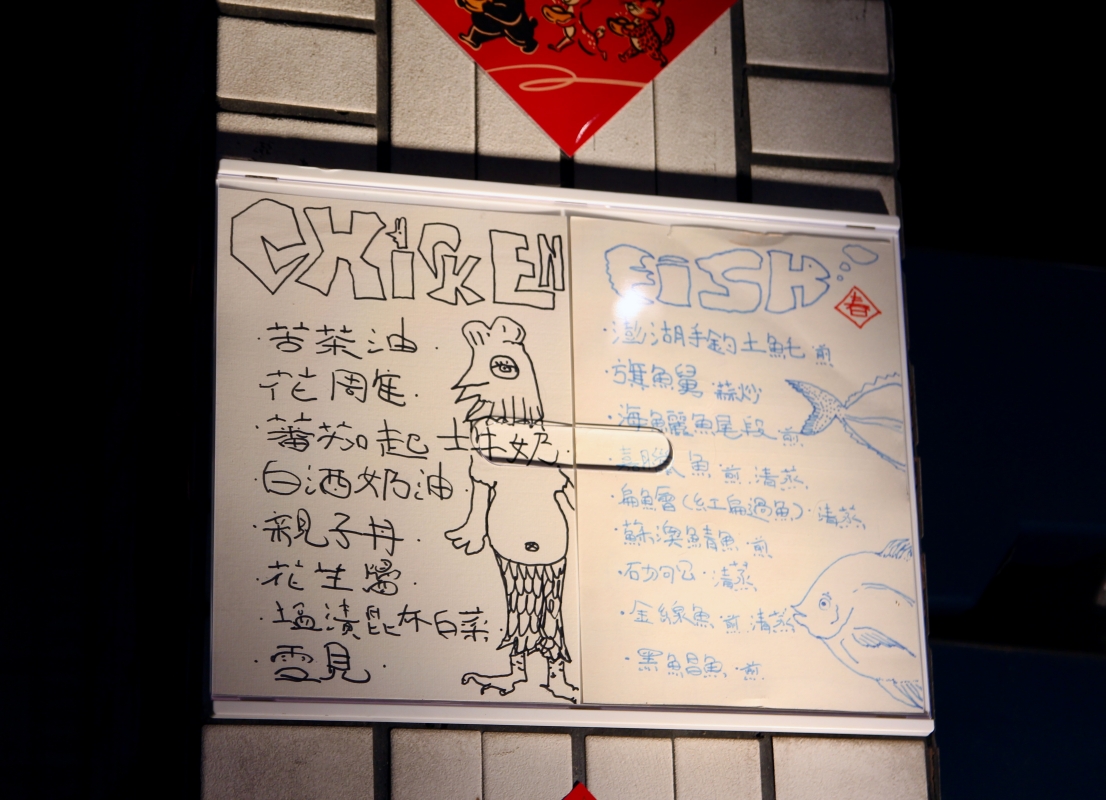 CHiCKEN
·苦茶油·
·花雕·
·蕃茄起士牛奶·
·白酒奶油·
·親子丼·
·花生醬·
·塩漬昆布白菜
·雪見·
FiSH
春
·澎湖手釣土魠·煎
·旗魚 ·蒜炒
·海鱺魚尾段·煎
魚·煎·清蒸
·清蒸
·蘇澳鯖魚·煎
·清蒸
·金線魚·煎·清蒸
·黑鯧魚·煎